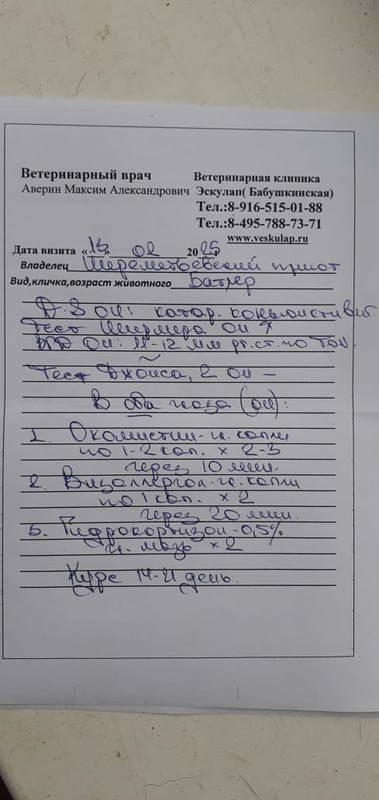 Ветеринарный врач
Аверин Максим Александрович
Ветеринарная клиника
Эскулап( Бабушкинская)
Тел.:8-916-515-01-88
Тел.:8-495-788-73-71
www.veskulap.ru
Дата визита «13» 02 2025г
Владелец Шереметьевский приют
Вид,кличка,возраст животного Батлер
D.S OU: катар. конъюнктивит
Тест Ширмера OU ↑
ВГД OU: 11-12 мм рт.ст. по Тон.
Тест Джонса, 2 OU –
В оба глаза (OU):
1. Окомистин-гл. капли
по 1-2 кап. × 2-3
через 10 мин.
2. Визаллергол-гл. капли
по 1 кап. × 2
через 20 мин.
3. Гидрокортизон-0,5%
гл. мазь × 2
Курс 14-21 день.